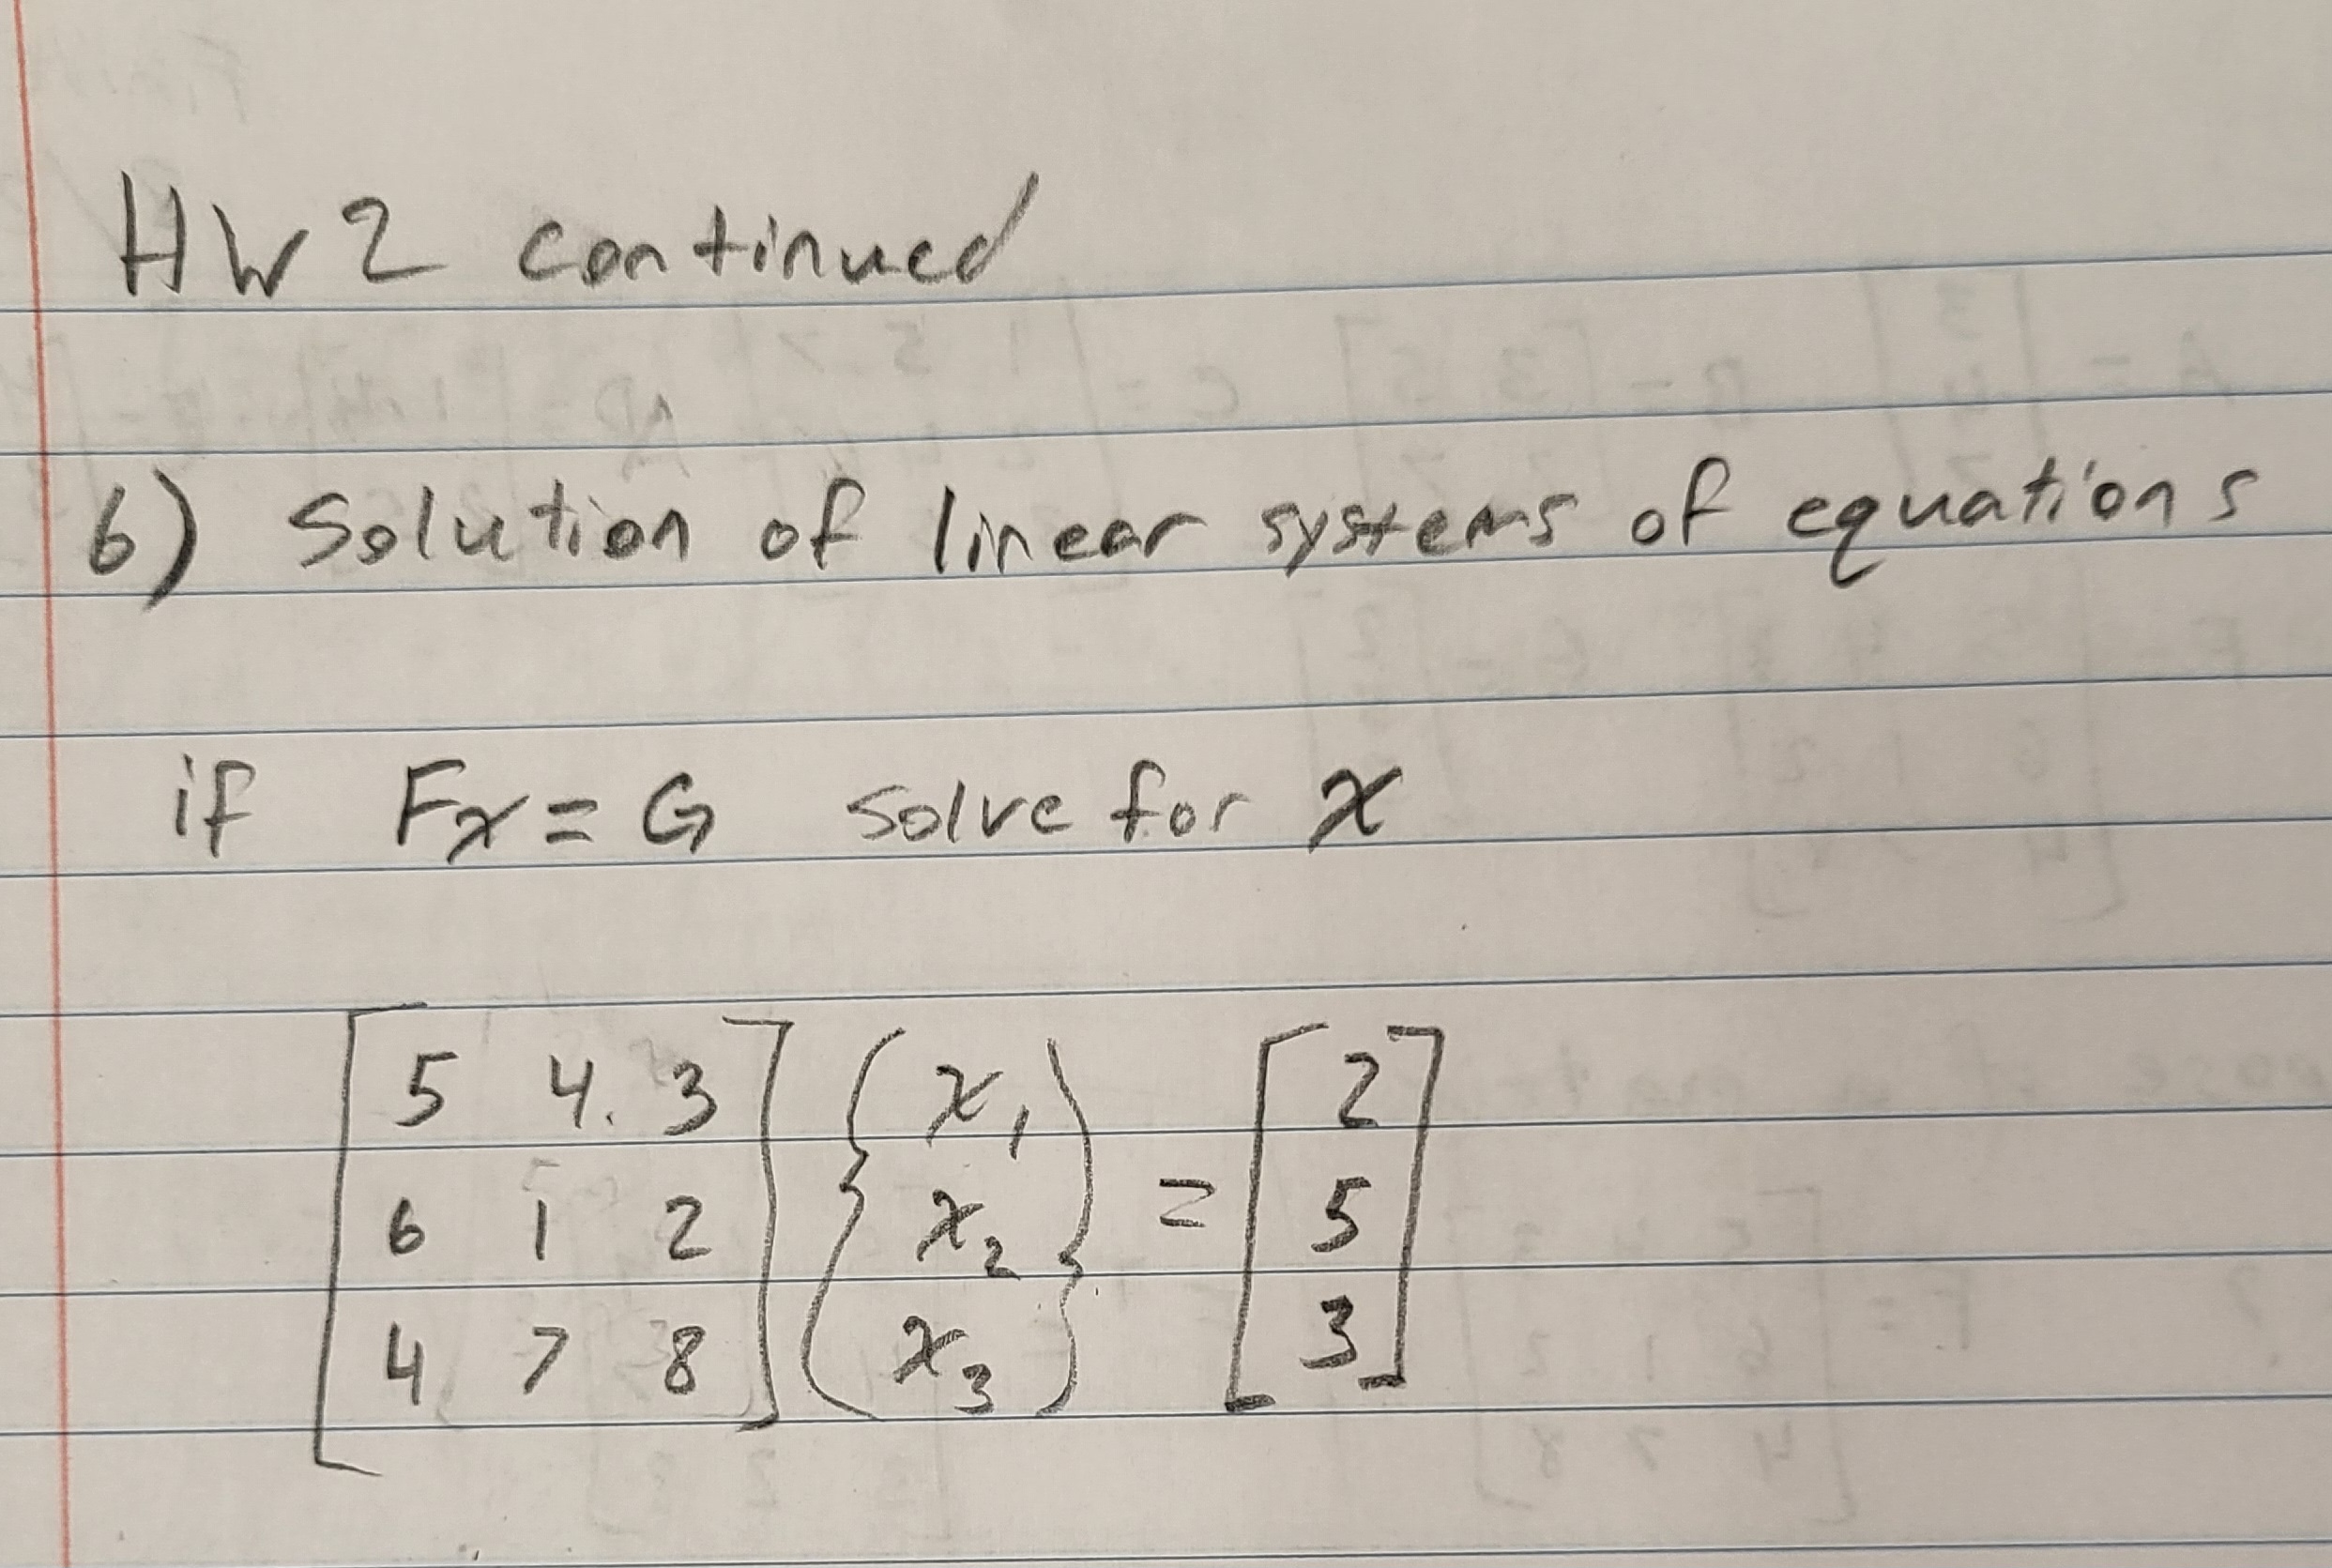 HW 2 continued
6) Solution of linear systems of equations
if Fx = G solve for x
[5 4. 3] {x1} = [2]
[6 1 2] {x2} = [5]
[4 7 8] {x3} = [3]